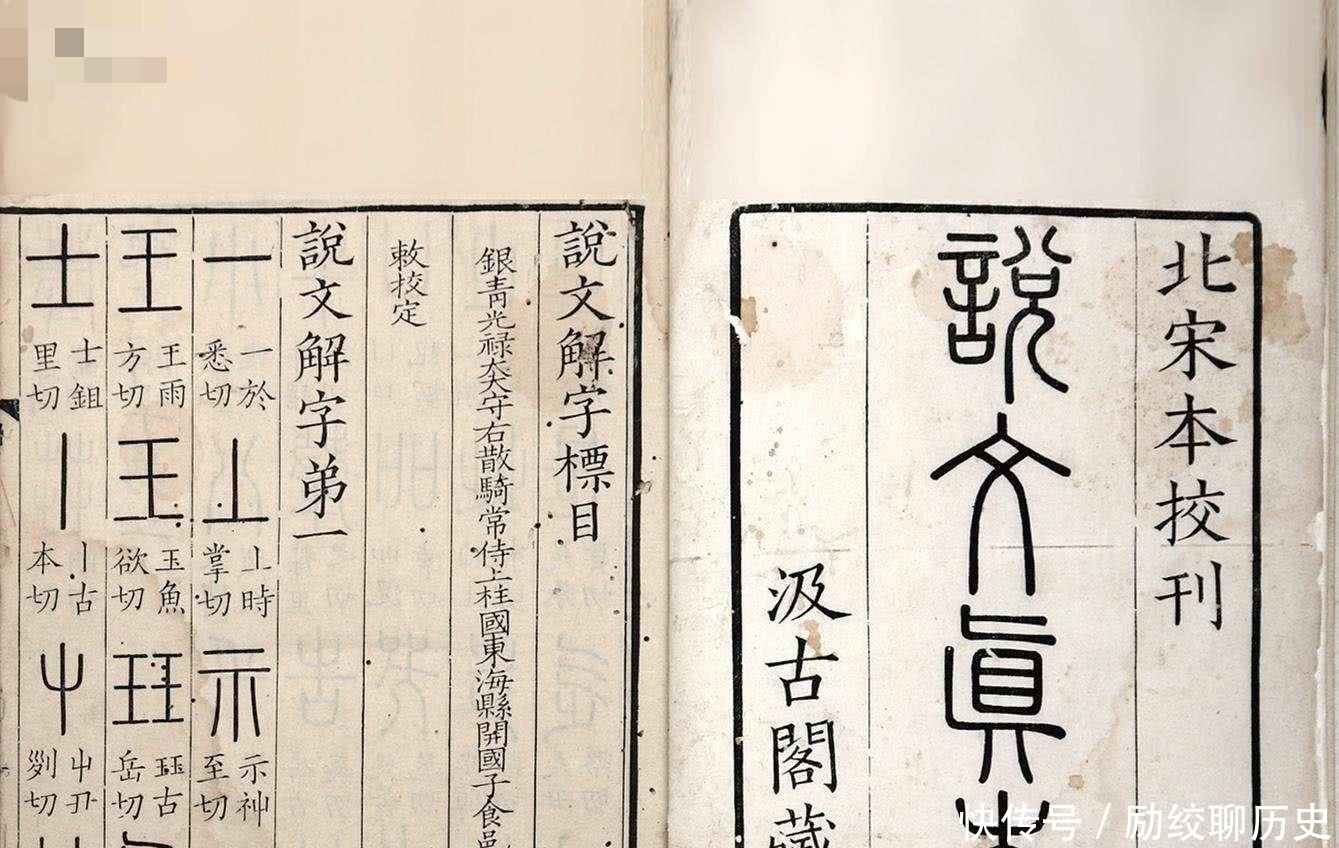 北宋本挍刊
說文眞本
汲古閣藏
說文解字標目
銀青光祿大夫守右散騎常侍上柱國東海縣開國子食邑
敕挍定
說文解字弟一
一 一於悉切 丄 丄時掌切 示 示神至切
王 王雨方切 王 玉魚欲切 玨 玨古岳切
士 士鉏里切 丨 丨古本切 屮 屮丑列切
快传号 / 励绞聊历史